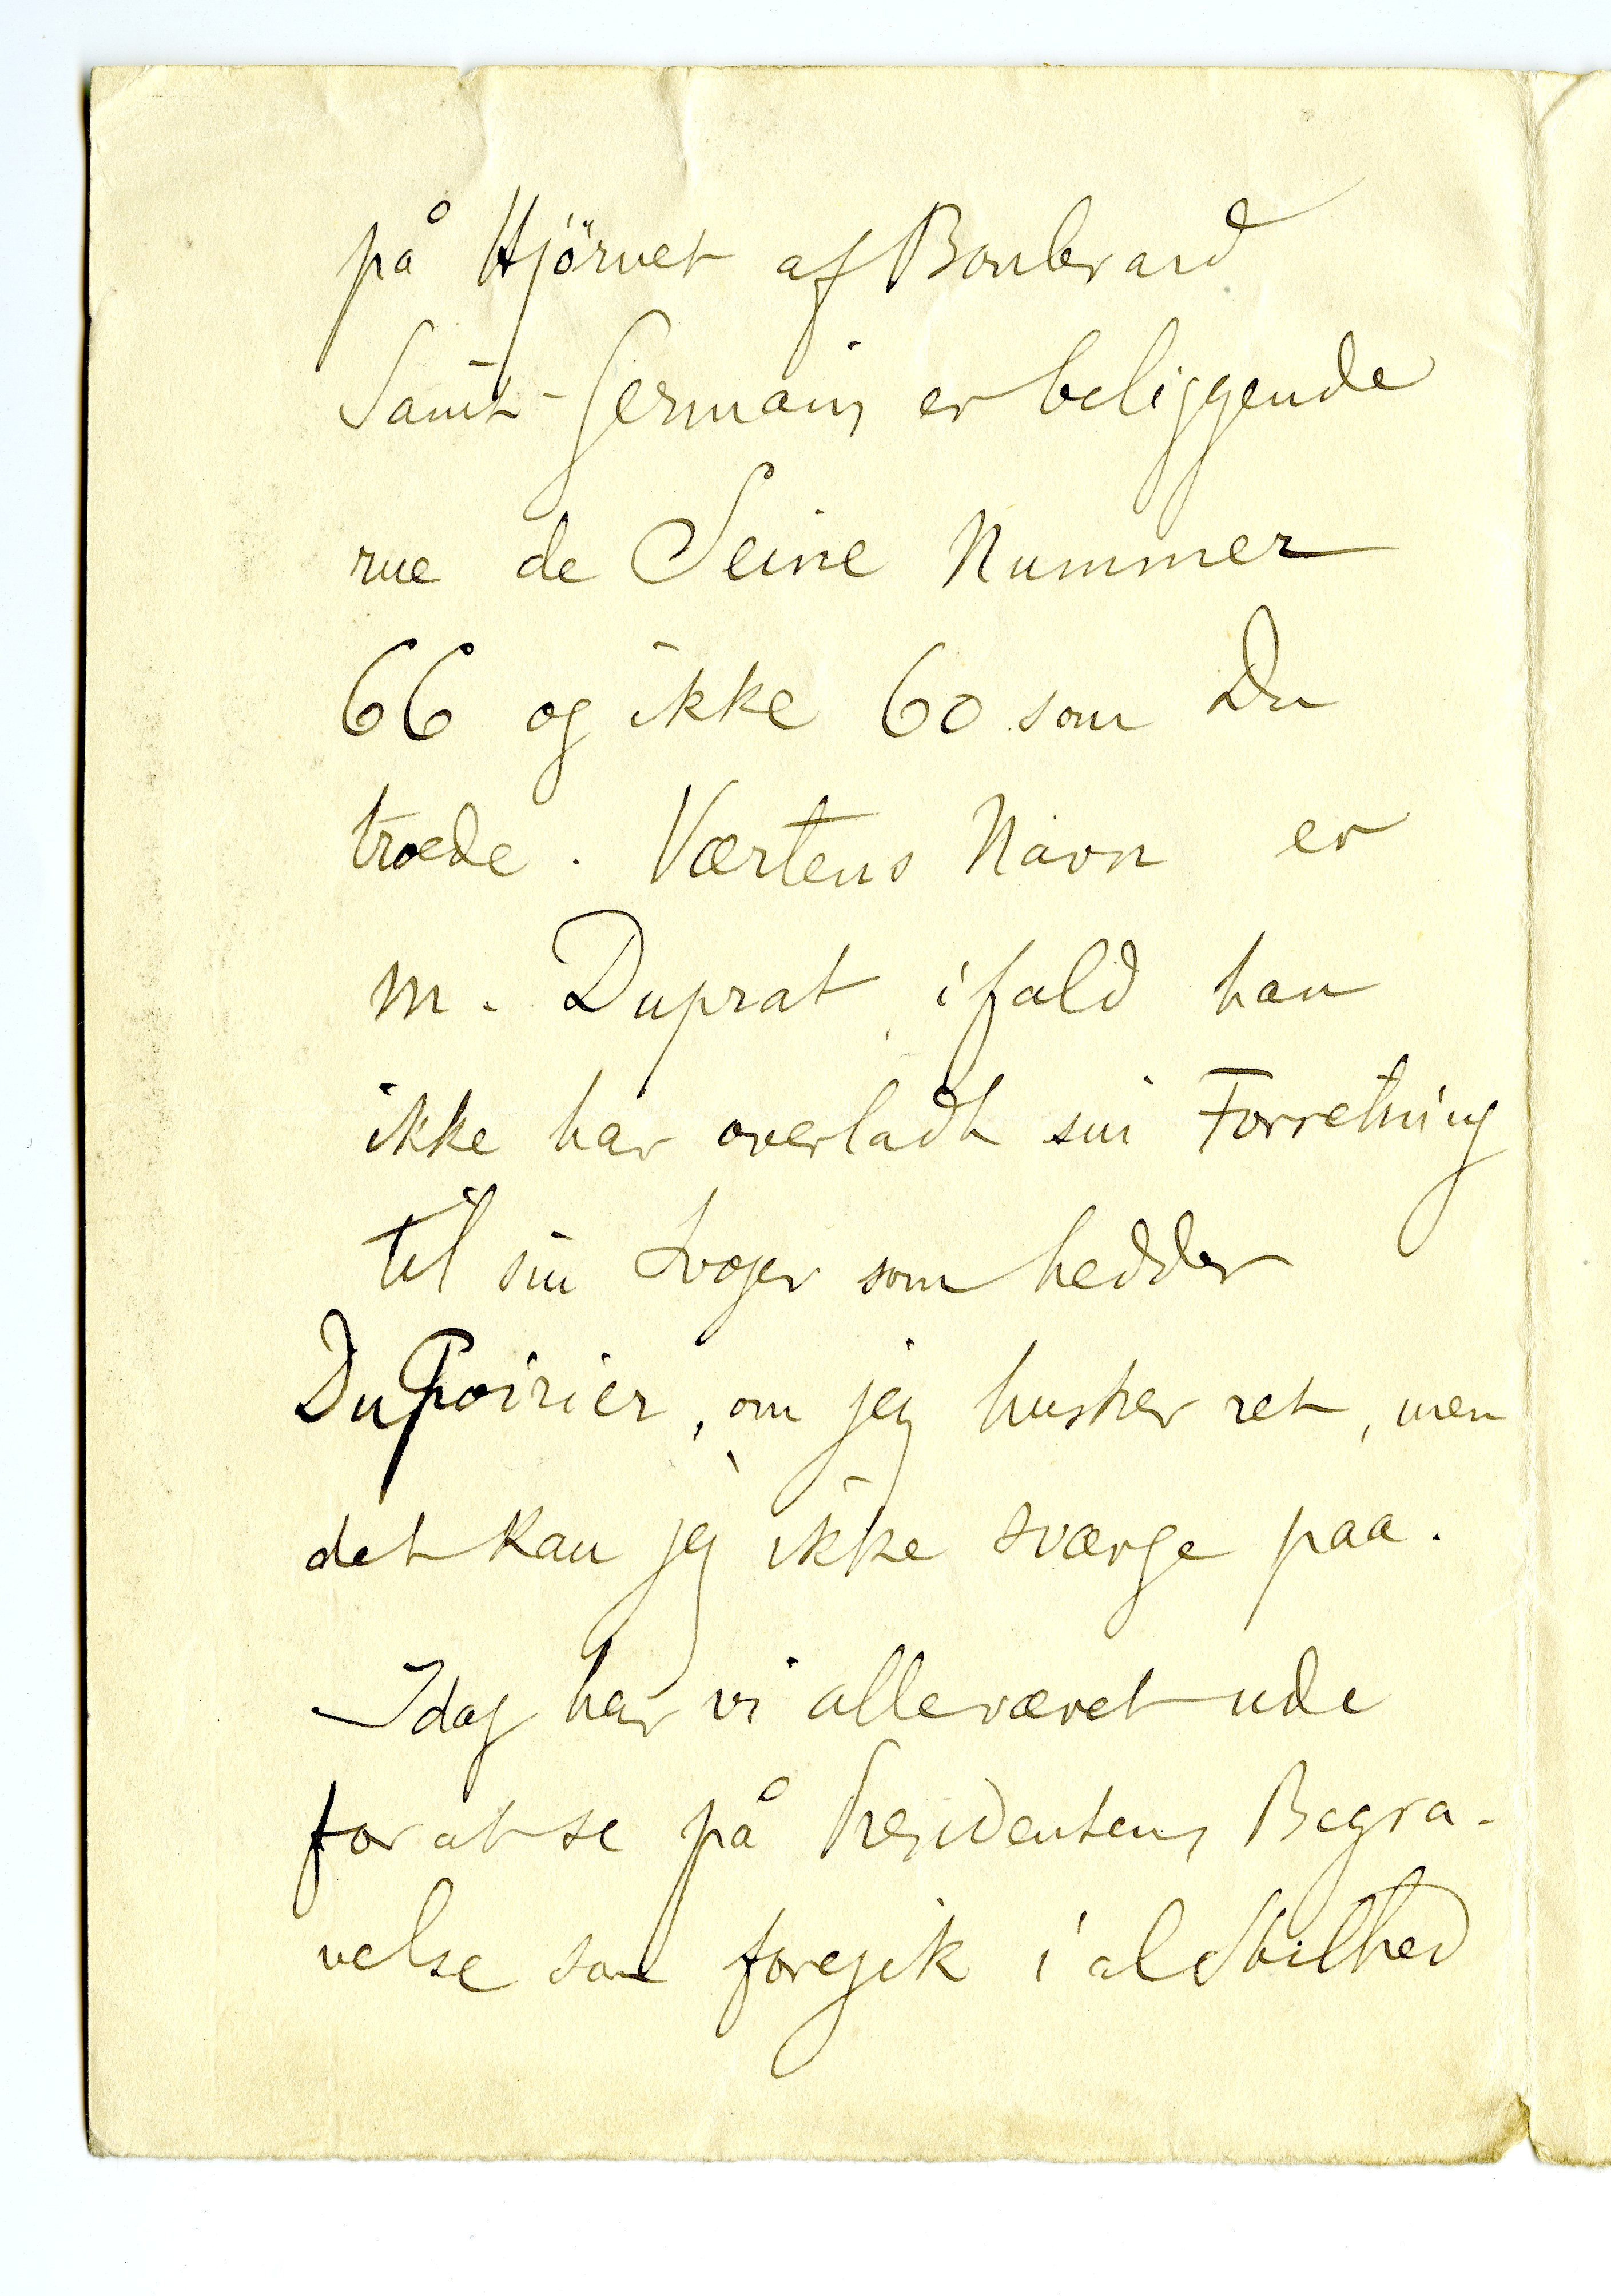 på Hjörnet af Boulevard
Saint-Germain er beliggende
rue de Seine Nummer
66 og ikke 60 som Du
troede. Værtens Navn er
M. Duprat, ifald han
ikke har overladt sin Forretning
til sin Svoger som hedder
DuPoirier, om jeg husker ret, men
det kan jeg ikke sværge paa.
Idag har vi alle været ude
for at se på Presidentens Begra-
velse som foregik i al Stilhed